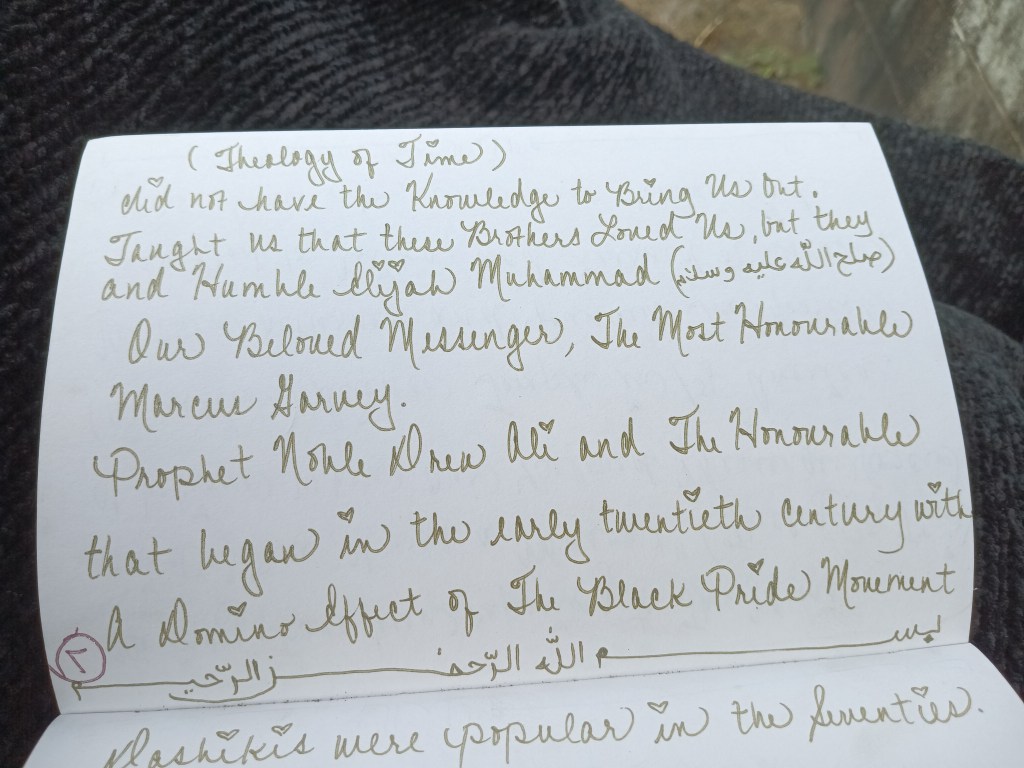 (Theology of Time)
did not have the Knowledge to Bring Us Out.
Taught us that these Brothers Loved Us, but they
and Humble Elijah Muhammad (صلى الله عليه وسلم)
Our Beloved Messenger, The Most Honourable
Marcus Garvey.
Prophet Noble Drew Ali and The Honourable
that began in the early twentieth century with
A Domino Effect of The Black Pride Movement
٢
بسم اللّه الرّحمن الرّحيم
Dashikis were popular in the Seventies.